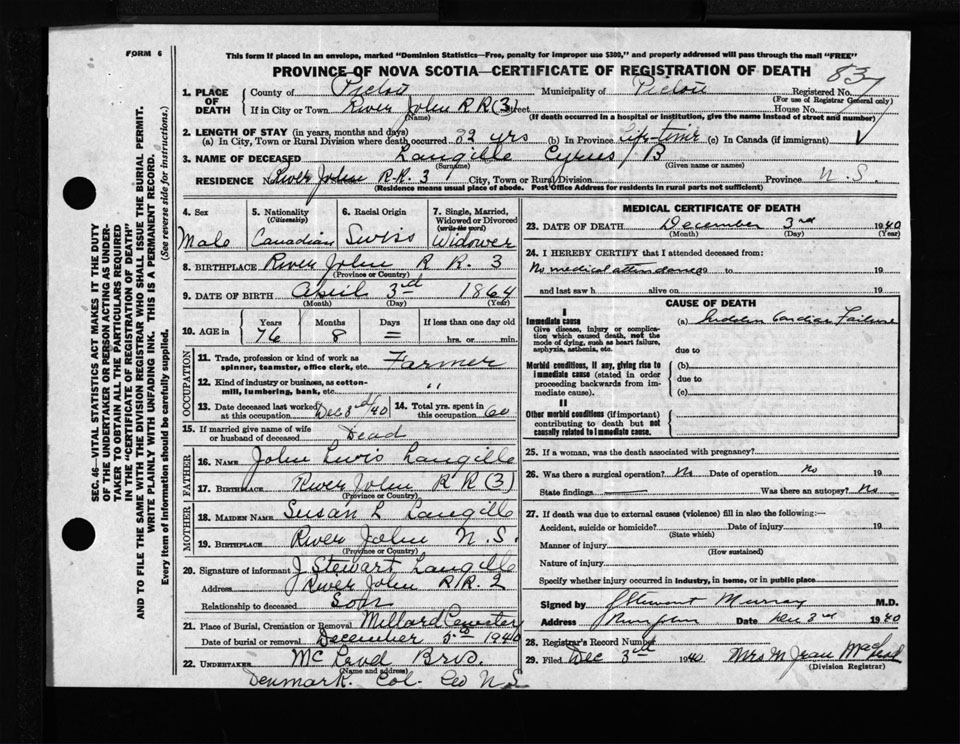 FORM 6
This form if placed in an envelope, marked "Dominion Statistics—Free, penalty for improper use $300," and properly addressed will pass through the mail "FREE"
PROVINCE OF NOVA SCOTIA—CERTIFICATE OF REGISTRATION OF DEATH
SEC. 46—VITAL STATISTICS ACT MAKES IT THE DUTY
OF THE UNDERTAKER OR PERSON ACTING AS UNDER-
TAKER TO OBTAIN ALL THE PARTICULARS REQUIRED
IN THE "CERTIFICATE OF REGISTRATION OF DEATH"
AND TO FILE THE SAME WITH THE DIVISION REGISTRAR WHO SHALL ISSUE THE BURIAL PERMIT.
WRITE PLAINLY WITH UNFADING INK. THIS IS A PERMANENT RECORD.
Every item of Information should be carefully supplied. (See reverse side for instructions.)
1. PLACE OF DEATH
County of Pictou Municipality of Pictou Registered No. 837
(For use of Registrar General only)
If in City or Town River John R R (3) Street House No.
(Name) (If death occurred in a hospital or institution, give the name instead of street and number)
2. LENGTH OF STAY (in years, months and days)
(a) In City, Town or Rural Division where death occurred 82 yrs (b) in Province Life-time (c) In Canada (if immigrant)
3. NAME OF DECEASED Langille Cyrus B
(Surname) (Given name or names)
RESIDENCE No. River John R.R. 3 City, Town or Rural Division Province N.S.
(Residence means usual place of abode. Post Office Address for residents in rural parts not sufficient)
4. Sex 5. Nationality (Citizenship) 6. Racial Origin 7. Single, Married, Widowed or Divorced (write the word)
Male Canadian Swiss Widower
8. BIRTHPLACE River John R R. 3
(Province or Country)
9. DATE OF BIRTH April 3rd 1864
(Month) (Day) (Year)
10. AGE in Years Months Days If less than one day old
76 8 = hrs. or min.
OCCUPATION
11. Trade, profession or kind of work as spinner, teamster, office clerk, etc. Farmer
12. Kind of industry or business, as cotton-mill, lumbering, bank, etc. "
13. Date deceased last worked at this occupation 14. Total yrs. spent in this occupation 60
15. If married give name of wife or husband of deceased Dead
FATHER
16. NAME John Lewis Langille
17. BIRTHPLACE River John R R (3)
(Province or Country)
MOTHER
18. MAIDEN NAME Susan L Langille
19. BIRTHPLACE River John N.S.
(Province or Country)
20. Signature of informant J Stewart Langille
Address River John R R. 2
Relationship to deceased Son
21. Place of Burial, Cremation or Removal Millard Cemetery
Date of burial or removal December 5th 1940
22. UNDERTAKER McLeod Bros.
(Name and address)
Denmark. Col. Co N.S.
MEDICAL CERTIFICATE OF DEATH
23. DATE OF DEATH December 3rd 1940
(Month) (Day) (Year)
24. I HEREBY CERTIFY that I attended deceased from:
No medical attendance to 19
and last saw h alive on 19
CAUSE OF DEATH
I
Immediate cause (a) Sudden Cardiac Failure
Give disease, injury or complica-
tion which caused death, not the
mode of dying, such as heart failure,
asphyxia, asthenia, etc. due to
Morbid conditions, if any, giving rise to (b)
immediate cause (stated in order due to
proceeding backwards from im-
mediate cause). (c)
II
Other morbid conditions (if important)
contributing to death but not
causally related to immediate cause.
25. If a woman, was the death associated with pregnancy?
26. Was there a surgical operation? No Date of operation no 19
State findings Was there an autopsy? No
27. If death was due to external causes (violence) fill in also the following:—
Accident, suicide or homicide? Date of injury 19
(State which)
Manner of injury
(How sustained)
Nature of injury
Specify whether injury occurred in industry, in home, or in public place
Signed by J Stewart Murray M.D.
Address River John Date Dec 3rd 1940
28. Registrar's Record Number
29. Filed Dec 3rd 1940 Mrs M Jean
(Division Registrar)